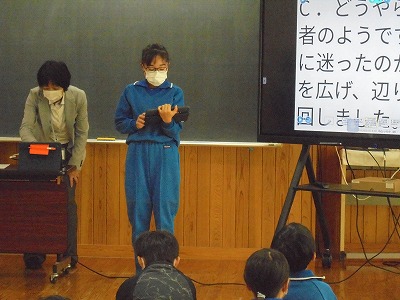 C．どうやら
者のようです
に迷ったのか
を広げ、辺り
回しました。